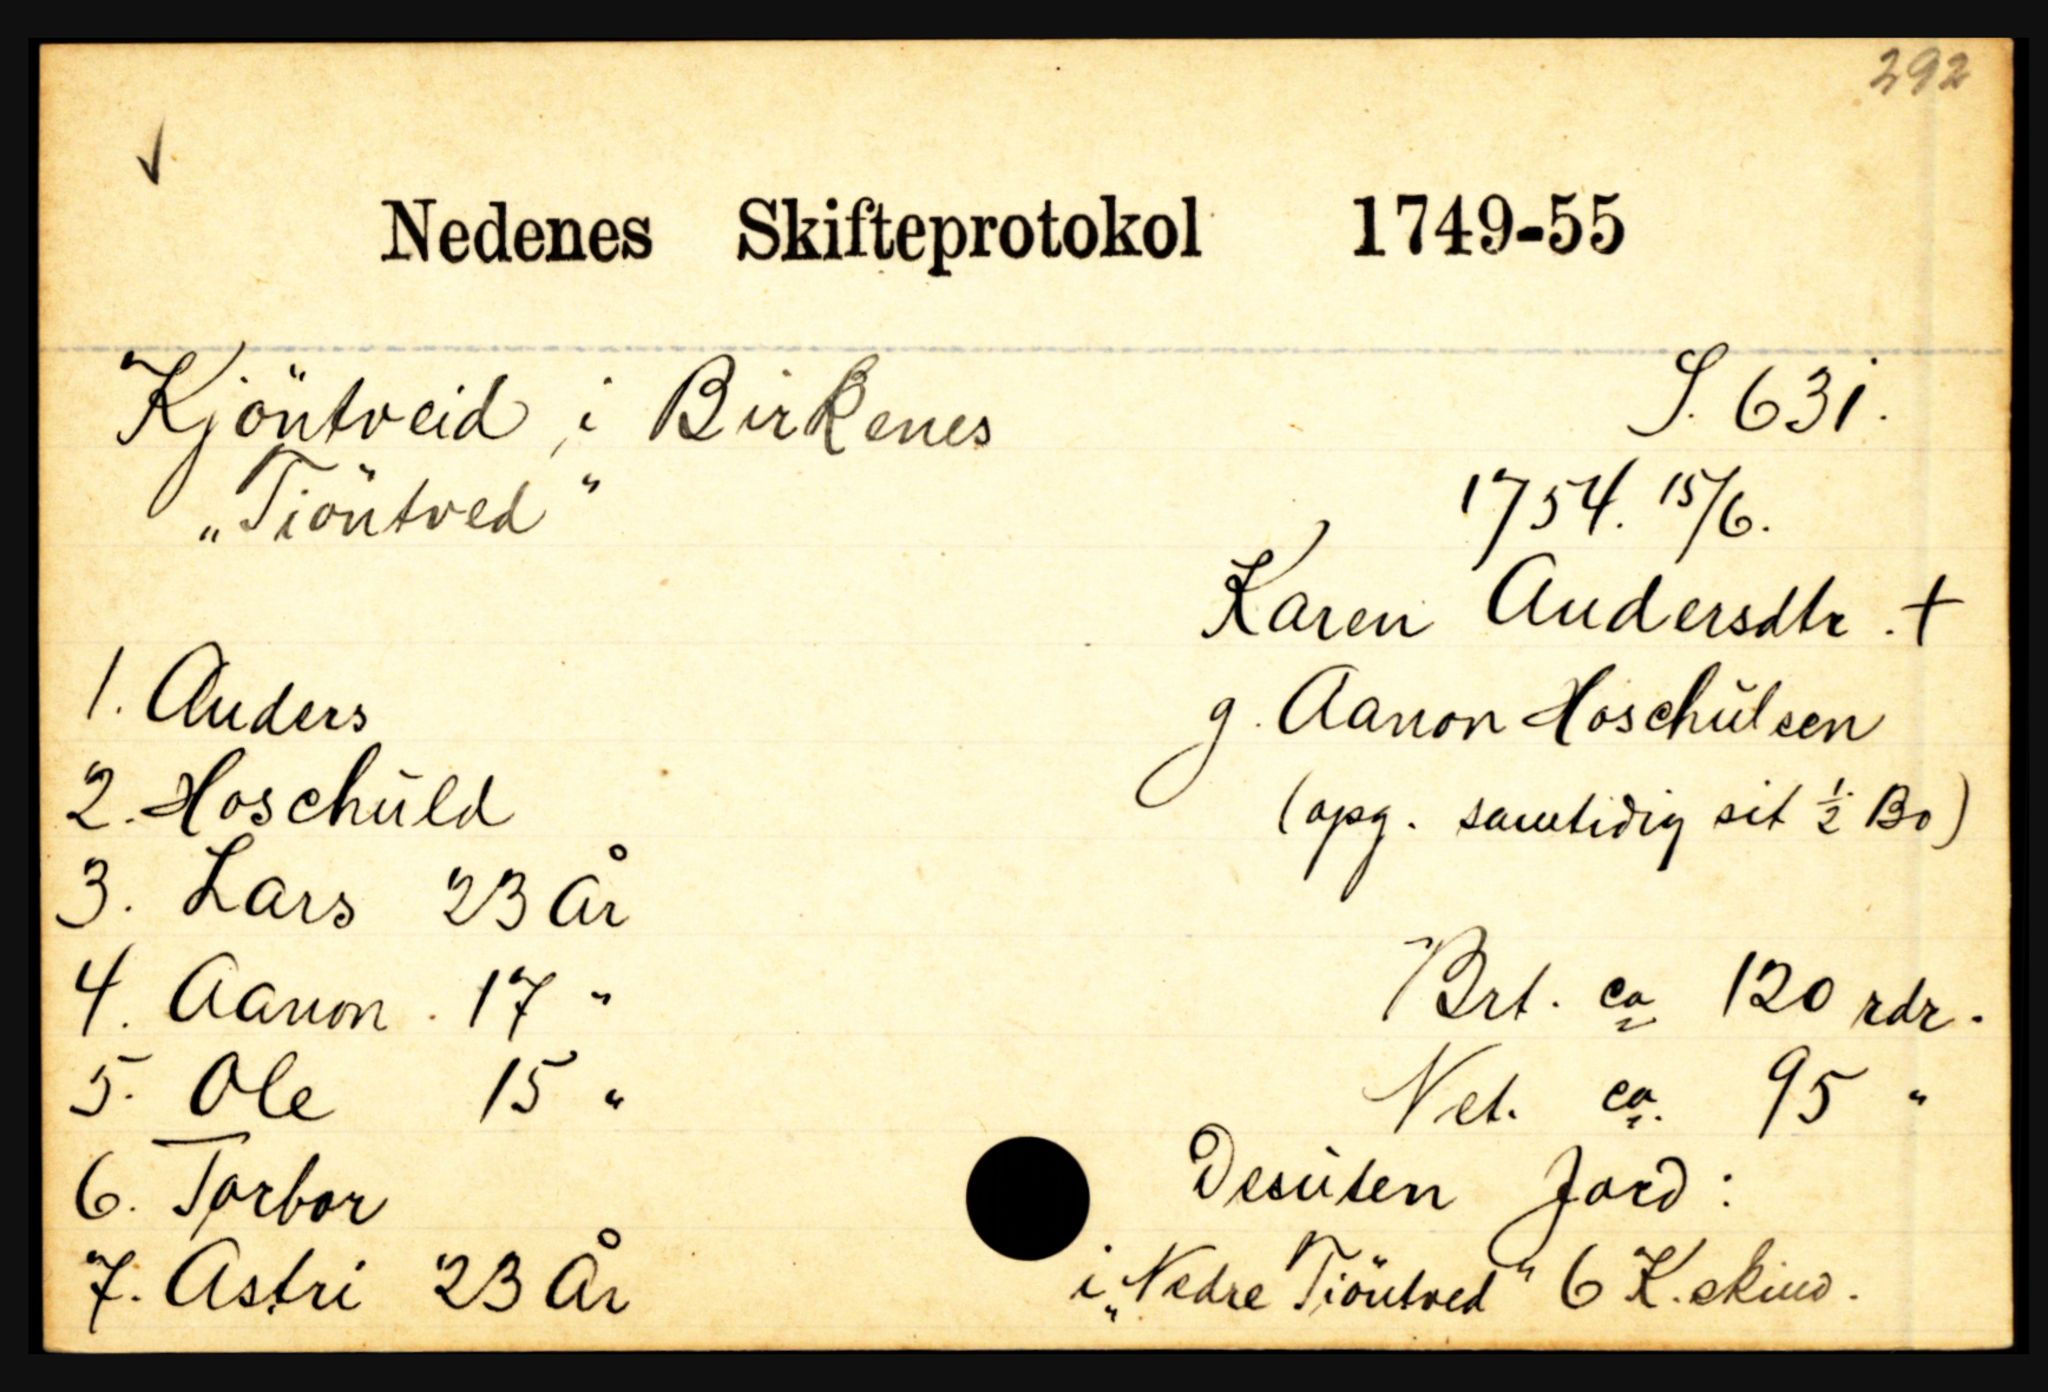 292
Nedenes Skifteprotokol 1749-55
Kjöntveid i Birkenes
S. 631.
„Tiöntved"
1754. 15/6.
Karen Andersdtr. +
1. Anders
g. Aanon Hoschŭlsen
2. Hoschŭld
(opg. samtidig sit ½ Bo)
3. Lars 23 År
4. Aanon. 17 "
Brt. ca 120 rdr.
5. Ole 15 "
Net. ca. 95 "
6. Torbor
Desŭten Jord:
7. Astri 23 År
i „Nedre Tiöntved" 6 K.skind.